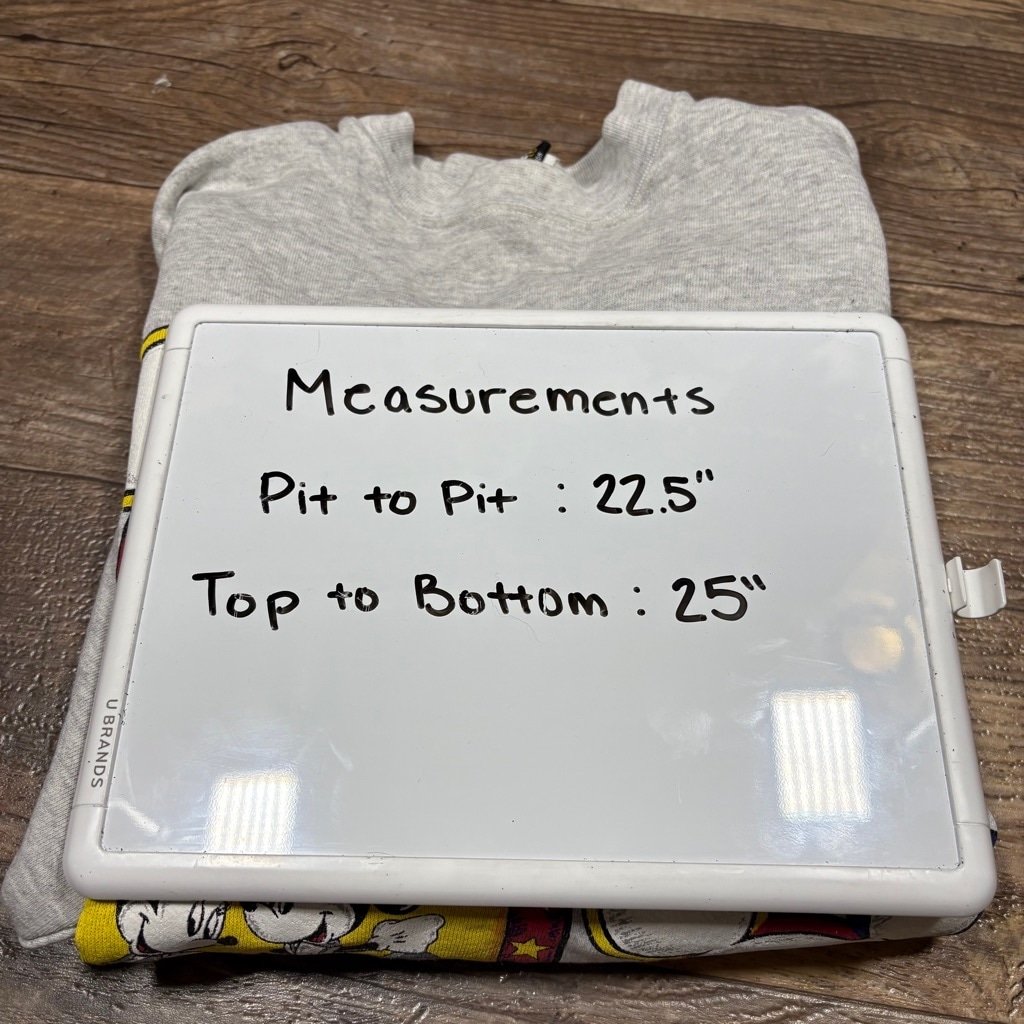 Measurements
Pit to Pit : 22.5"
Top to Bottom : 25"
U BRANDS